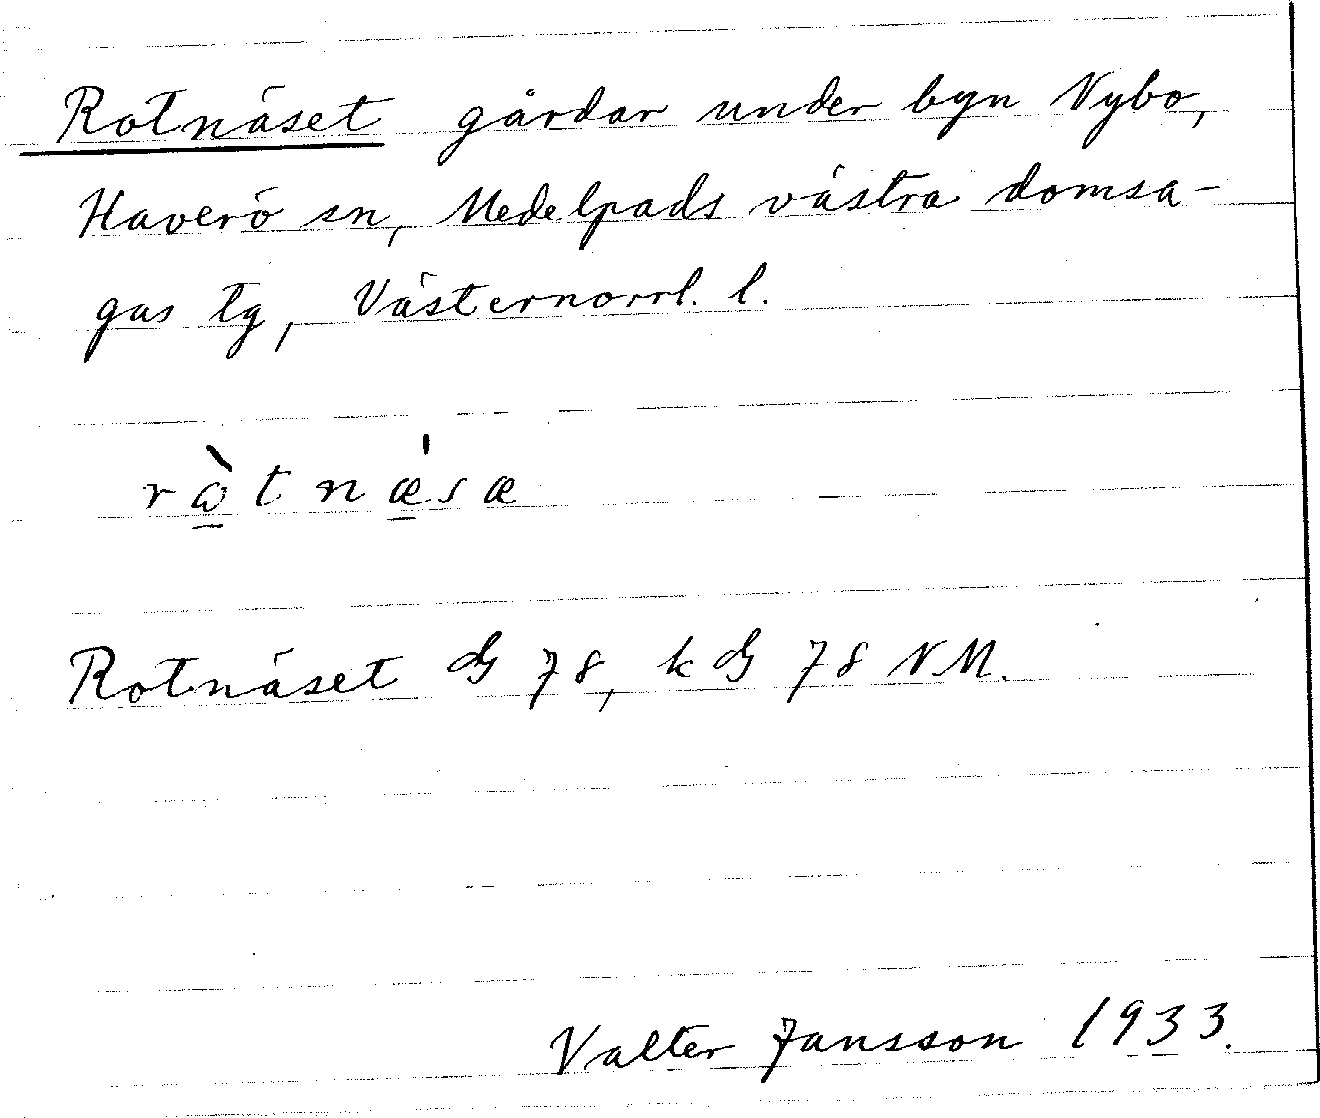 Rotnäset gårdar under byn Nybo,
Haverö sn, Medelpads västra domsa-
gas tg, Västernorrl. l.
ròtnæ'sæ
Rotnäset G 78, k G 78 NM.
Valter Jansson 1933.